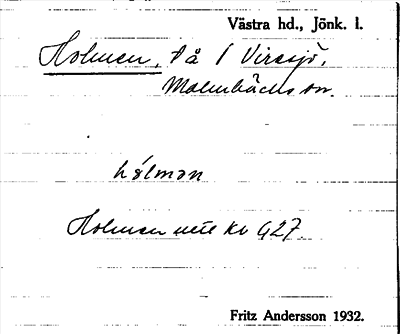 Västra hd., Jönk. l.
Holmen, tå 1 Virasjö,
Malmbäcks sn.
hólmən
Holmen
Fritz Andersson 1932.